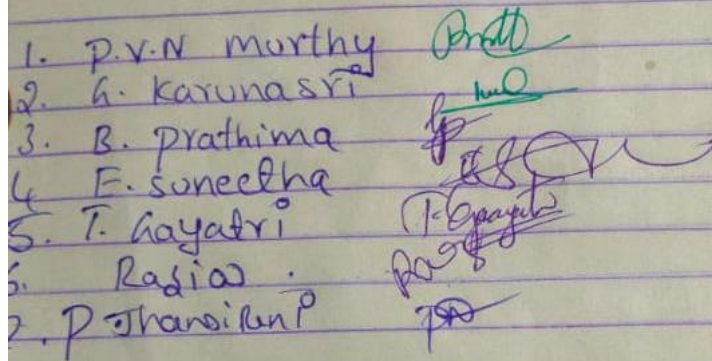 1. P.V.N Murthy
2. G. Karunasri
3. B. Prathima
4 E. Suneetha
5. T. Gayatri T. Gayatri
6. Razia
7. P Jhansi Rani